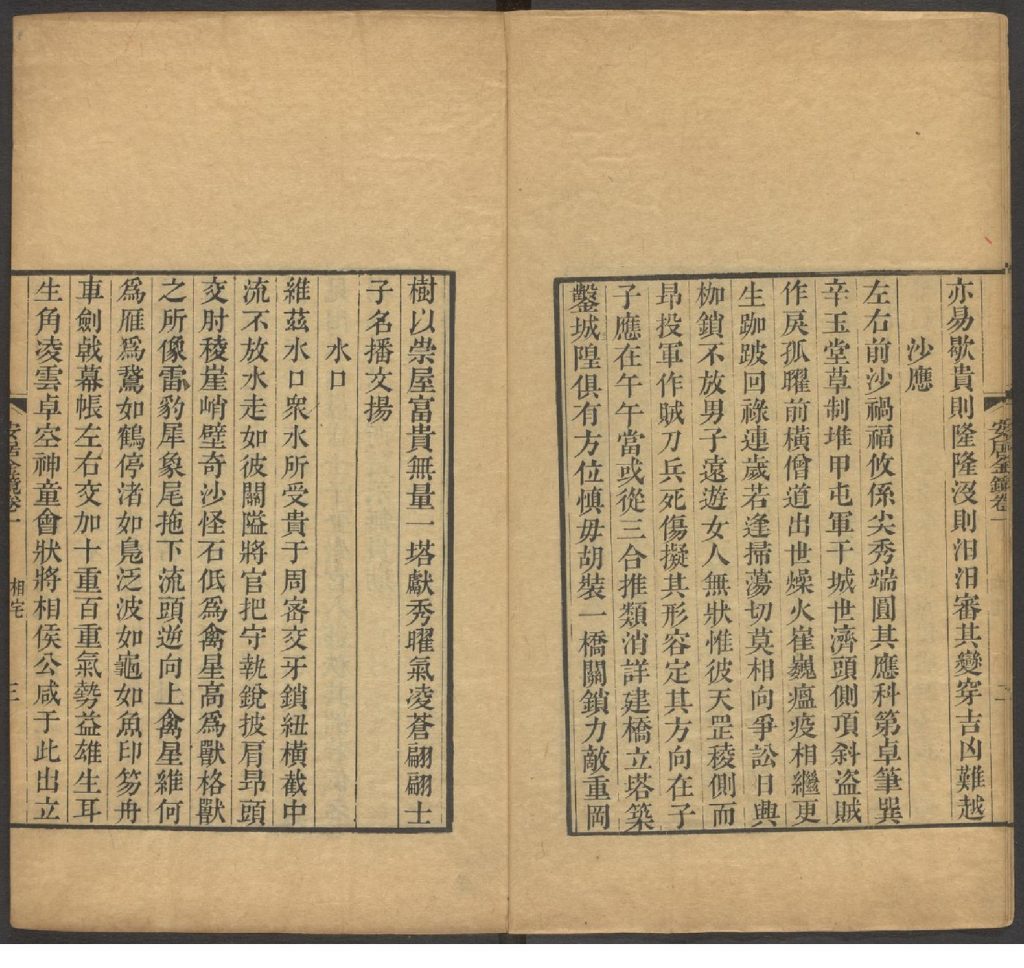 亦易歇貴則隆隆沒則汨汨審其變穿吉凶難越
沙應
左右前沙禍福攸係尖秀端圓其應科第卓筆巽
辛玉堂草制堆甲屯軍干城世濟頭側頂斜盜賊
作戾孤曜前橫僧道出世燥火崔巍瘟疫相繼更
生跏跛回祿連歲若逢掃蕩切莫相向爭訟日興
枷鎖不放男子遠遊女人無狀惟彼天罡稜側而
昂投軍作賊刀兵死傷擬其形容定其方向在子
子應在午午當或從三合推類消詳建橋立塔築
鑿城隍俱有方位慎毋胡裝一橋關鎖力敵重岡
安居金鏡卷一
二
樹以崇屋富貴無量一塔獻秀曜氣凌蒼翩翩士
子名播文揚
水口
維茲水口衆水所受貴于周密交牙鎖紐橫截中
流不放水走如彼關隘將官把守執銳披肩昂頭
交肘稜崖峭壁奇沙怪石低爲禽星高爲獸格獸
之所像雷豹犀象尾拖下流頭逆向上禽星維何
爲雁爲鵞如鶴停渚如鳧泛波如龜如魚印笏舟
車劍戟幕帳左右交加十重百重氣勢益雄生耳
生角凌雲卓空神童會狀將相侯公咸于此出立
安居金鏡卷一
相宅
三